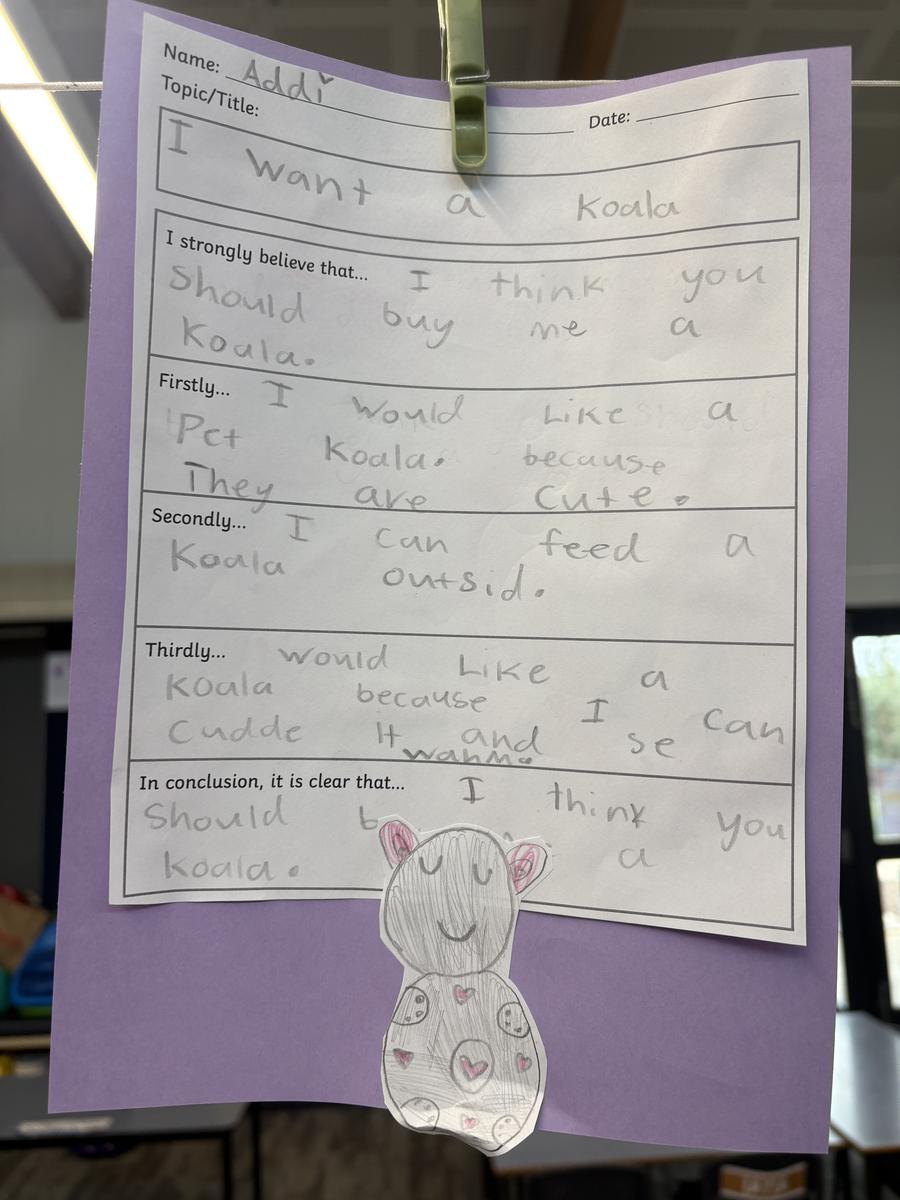 Name: Addi
Date:
Topic/Title:
I want a Koala
I strongly believe that... I think you
Should buy me a
Koala.
Firstly... I would Like a
Pet Koala. because
They are cute.
Secondly... I can feed a
Koala outsid.
Thirdly... would Like a
Koala because I can
Cudde It and se
wanm.
In conclusion, it is clear that... I think you
Should a
koala.